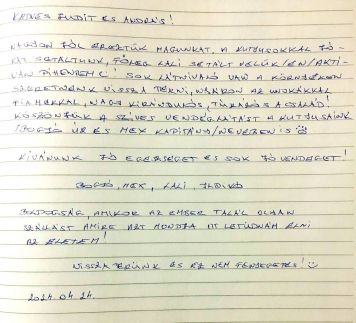 KEDVES JUDIT ÉS ANDRÁS!
NAGYON JÓL ÉREZTÜK MAGUNKAT, A KUTYUSOKKAL JÓ-
KAT SÉTÁLTUNK, FŐLEG LALI SÉTÁLT VELÜK/ÉN/AKTÍ-
VAN PIHENTEM! SOK LÁTNIVALÓ VAN A KÖRNYÉKEN
SZERETNÉNK VISSZA TÉRNI, NYÁRON AZ UNOKÁKKAL
FIAMÉKKAL, NAGY KIRÁNDULÓS, TÚRÁZÓS A CSALÁD!
KÖSZÖNJÜK A SZÍVES VENDÉGLÁTÁST A KUTYUSAINK
ÚR ÉS MEX KAPITÁNY/NEVÉBEN IS
KÍVÁNUNK JÓ EGÉSZSÉGET ÉS SOK JÓ VENDÉGET!
MEX, LALI, ILDIKÓ
BOLDOGSÁG, AMIKOR AZ EMBER TALÁL OLYAN
SZÁLLÁST AMIRE AZT MONDJA ITT LETUDNÁM ÉLNI
AZ ÉLETEM!
VISSZA TÉRÜNK ÉS EZ NEM FENYEGETÉS!
2024.04.24.